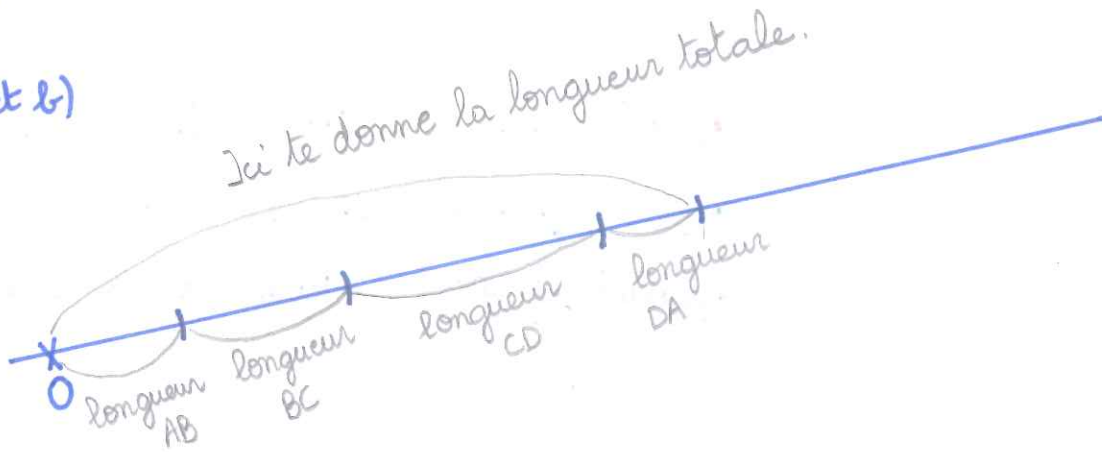 t b)
Ici te donne la longueur totale.
O
longueur
AB
longueur
BC
longueur
CD
longueur
DA